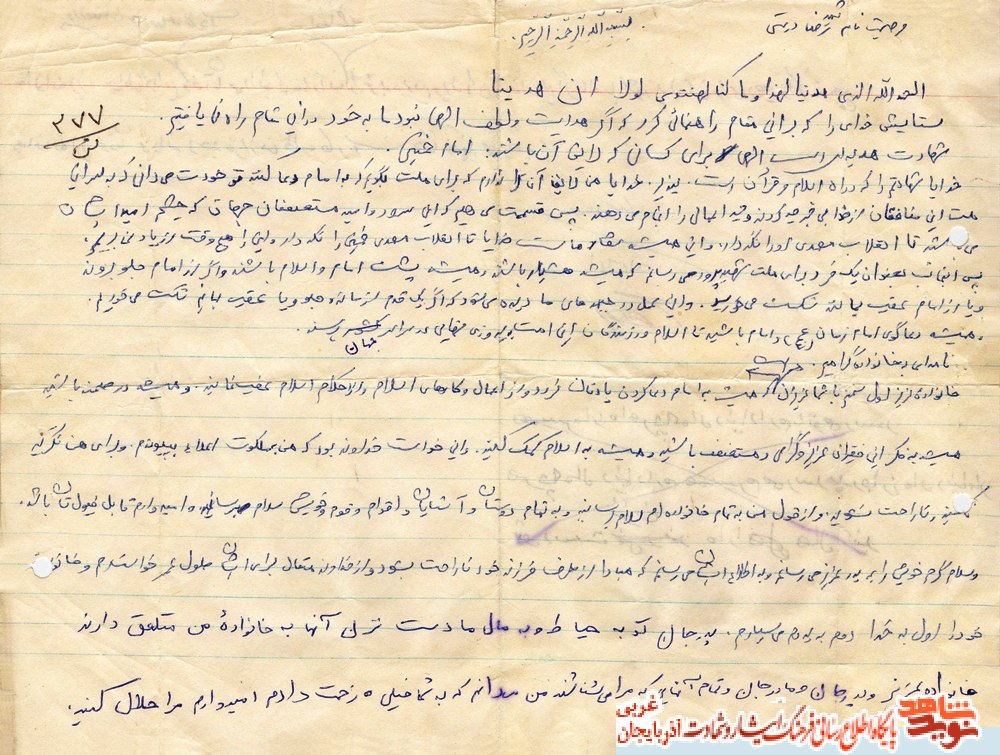 بسم الله الرحمن الرحیم
وصیت نامه شهید رضا درستی
الحمد الله الذی هدنیا لهذا و ما کنا لهتدی لولا ان هدینا
ستایش خدای را که براین مقام راهنمائی کرد که اگر هدایت و لطف الهی نبود ما به خود براین مقام راه نمی یافتیم.
۳۷۷
شهادت هدیه ایست الهی برای کسانی که لایق آن باشند. امام خمینی.
خدایا شهادتم را که در راه اسلام و قرآن است بپذیر. خدایا من لایق آن را ندارم که برای ملت بگویم که به امام دعا کنند تو خودت می دانی که
ملت این منافقان از خدا بی خبر چه کردند و چه اعمالی را انجام می دهند. پس قسمت می دهم که این امید مستضعفان جهان که چشم امیدشان
می باشد تا انقلاب مهدی او را نگه دار. و این همیشه شعار ماست خدایا تا انقلاب مهدی خمینی را نگه دار و این را هیچ وقت از یاد نمی بریم.
پس اینجانب بعنوان یک فرد برای ملت شهید پرور می رسانم که همیشه هشیار باشند و همیشه پشت امام و اسلام باشند و اگر از امام جلو روند
و یا از امام عقب بمانند شکست می خورند. و این عمل در جبهه های ما دیده می شود که اگر یک قدم از ما جلو و یا عقب بمانیم شکست می خوریم.
و همیشه دعاگوی امام زمان (عج) و امام باشید تا اسلام و رزمندگان این امت به پیروزی نهایی در سراسر جهان برسند.
نامه ای به خانواده گرامیم.
خانواده عزیز اول سخنم با شما عزیزان که همیشه به امام دعا کردن یادتان نرود و از اعمال و کارهای اسلام و از احکام اسلام عقب نمانید. و همیشه در صحنه باشید
همیشه به فکر این فقیران عزیز و گرامی و مستضعف باشید و همیشه به اسلام کمک کنید. و این خواست خداوند بود که من به ملکوت اعلاء بپیوندم. و برای من گریه
نکنید و ناراحت نشوید. و از قول من به تمام خانواده ام سلام برسانید و به تمام دوستان و آشنایان و اقوام و قوم و خویش سلام برسانید و امیدوارم قابل قبولتان باشد.
و سلام گرم خویش را به پدر عزیز می رسانم و به اطلاع ایشان می رسانم که مبادا از طرف فرزند خود ناراحت بشود و از خداوند متعال برای ایشان طول عمر خواستارم و خانواده
خود را اول به خدا دوم به پدرم می سپارم. پدر جان تو به حیاط و به مال ما دست نزن آنها به خانوادهٔ من متعلق دارند
خانواده عزیز و پدر جان و مادر جان و تمام آنهایی که مرا می شناسند من میدانم که به شما خیلی زحمت دادم امیدوارم مرا حلال کنید.
نوید شاهد
پایگاه اطلاع رسانی فرهنگ ایثار و شهادت آذربایجان غربی